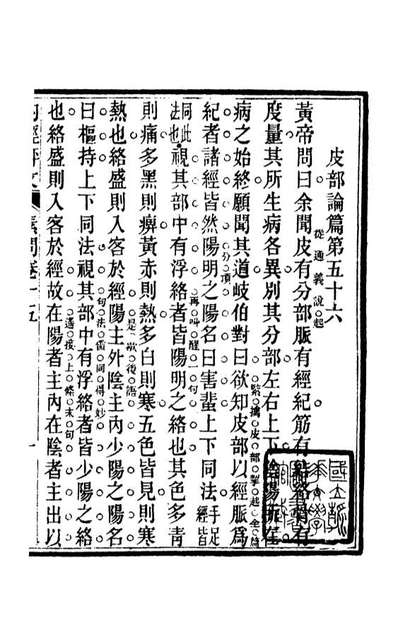 皮部論篇第五十六
從通義說起
黃帝問曰余聞皮有分部脈有經紀筋有結絡骨有
度量其所生病各異別其分部左右上下陰陽所在
病之始終願聞其道岐伯對曰欲知皮部以經脈為
紀者諸經皆然陽明之陽名曰害蜚上下同法手足經皆
同此法也視其部中有浮絡者皆陽明之絡也其色多青
則痛多黑則痹黃赤則熱多白則寒五色皆見則寒
熱也絡盛則入客於經陽主外陰主內少陽之陽名
曰樞持上下同法視其部中有浮絡者皆少陽之絡
也絡盛則入客於經故在陽者主內在陰者主出以
素問卷十五